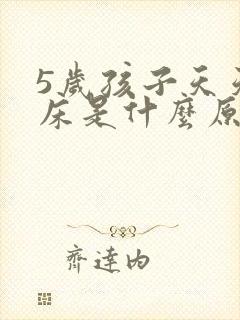 5歲孩子天天
床是什麼原
齊達內